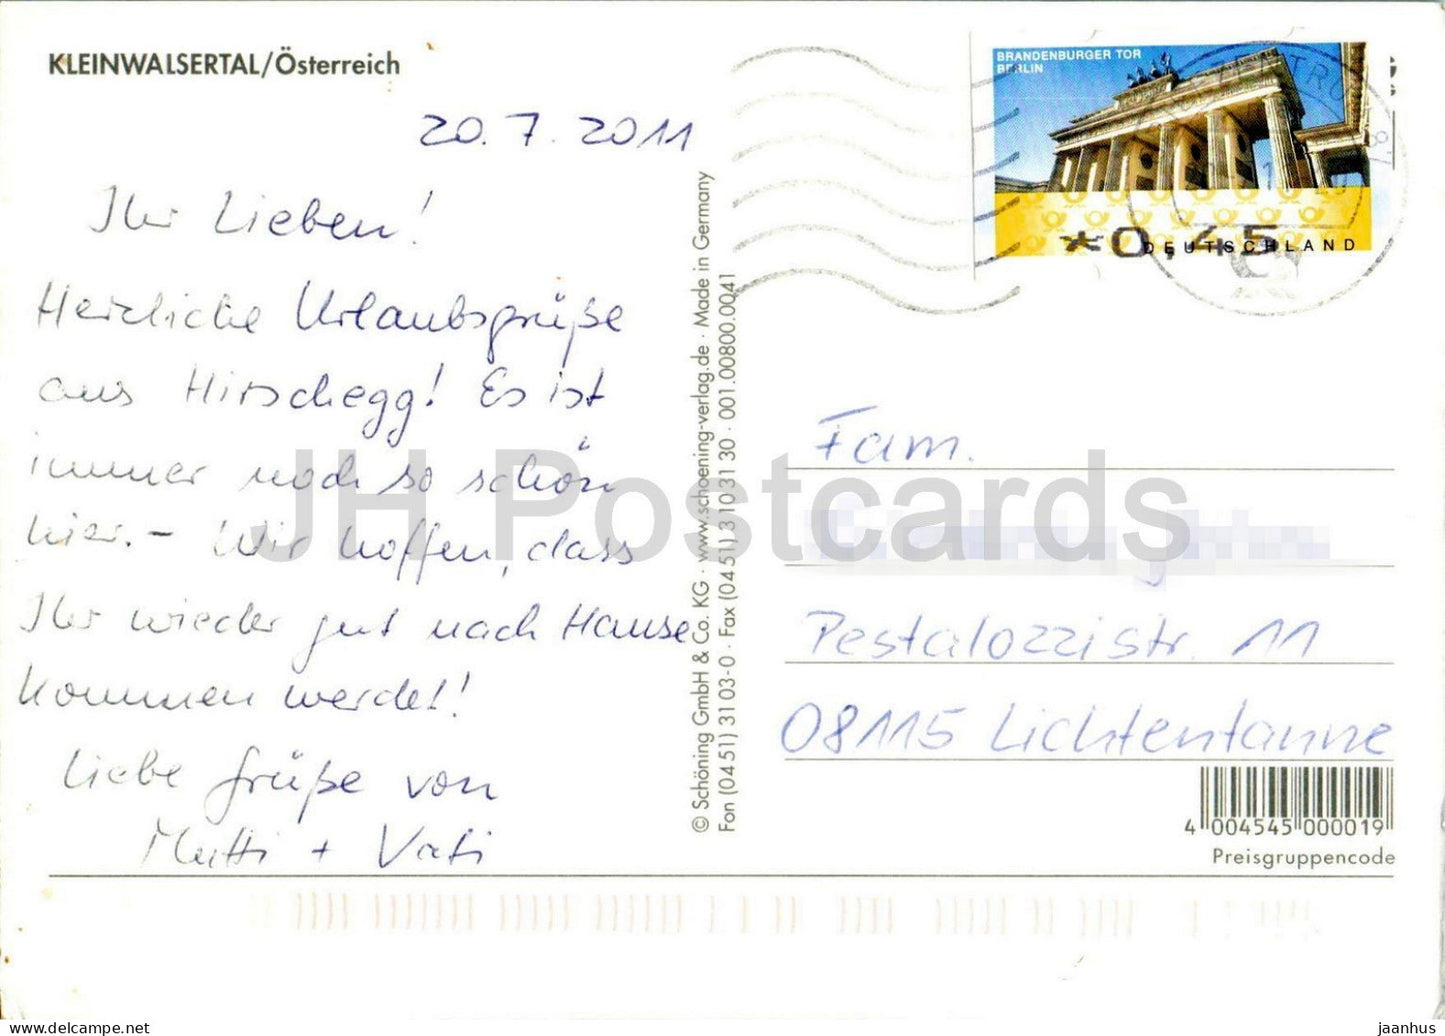 KLEINWALSERTAL/Österreich
20.7.2011
Ihr Lieben!
Herzliche Urlaubsgrüße
aus Hirschegg! Es ist
immer noch so schön
hier. - Wir hoffen, dass
Ihr wieder gut nach Hause
kommen werdet!
Liebe Grüße von
Mutti + Vati
© Schöning GmbH & Co. KG · www.schoening-verlag.de · Made in Germany
Fon (0451) 31 03-0 · Fax (0451) 3 10 31 30 · 001.00800.0041
BRANDENBURGER TOR
BERLIN
*0,45
DEUTSCHLAND
Fam.
Pestalozzistr. 11
08115 Lichtentanne
4 004545 000019
Preisgruppencode
JH Postcards
jaanhus - delcampe.net